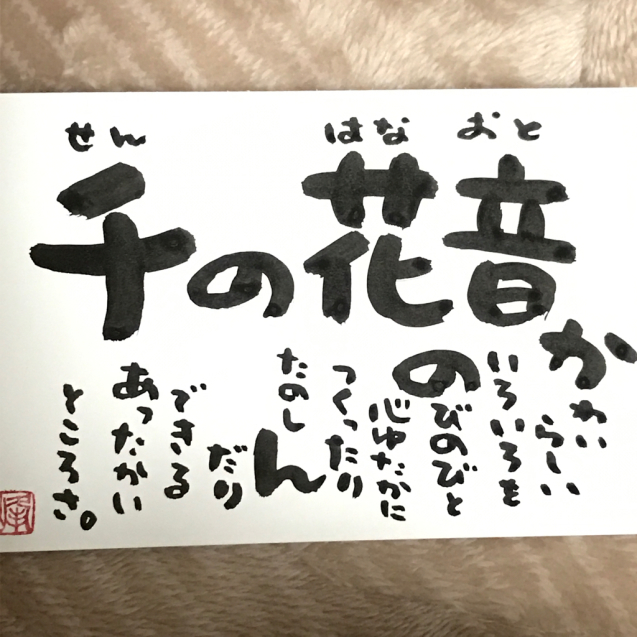 せん はな おと
千の花音
かわい
らしい
いろいろを
のびのびと
心ゆたかに
つくったり
たのしん
だり
できる
あったかい
ところさ。